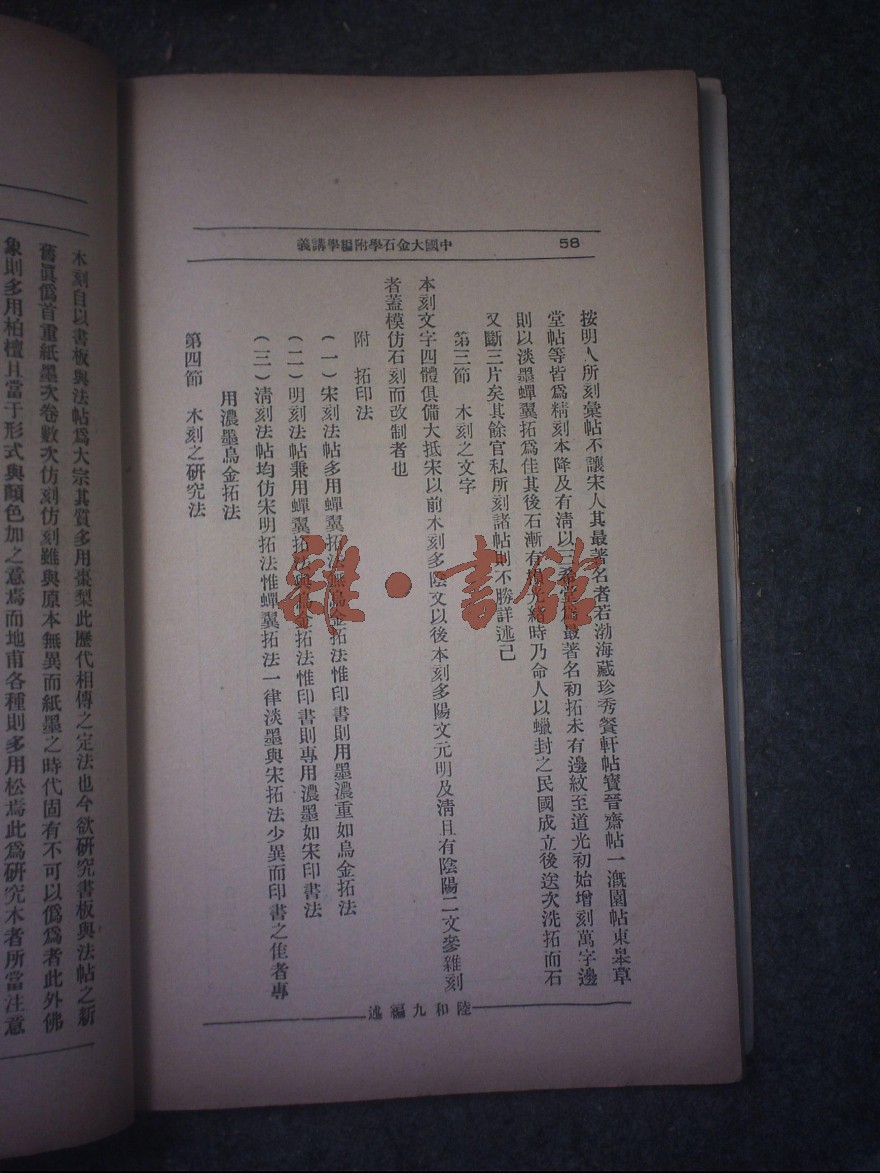 58
中國大金石學附編學講義
按明人所刻彙帖不讓宋人其最著名者若渤海藏珍秀餐軒帖寶晉齋帖一漑園帖東皋草
堂帖等皆爲精刻本降及有淸以三希堂爲最著名初拓未有邊紋至道光初始增刻萬字邊
則以淡墨蟬翼拓爲佳其後石漸有光緖時乃命人以蠟封之民國成立後迭次洗拓而石
又斷三片矣其餘官私所刻諸帖則不勝詳述已
第三節　木刻之文字
本刻文字四體俱備大抵宋以前木刻多陰文以後本刻多陽文元明及淸且有陰陽二文參雜刻
者蓋模仿石刻而改制者也
附　拓印法
（一）宋刻法帖多用蟬翼拓法無烏金拓法惟印書則用墨濃重如烏金拓法
（二）明刻法帖兼用蟬翼拓法與烏金拓法惟印書則專用濃墨如宋印書法
（三）淸刻法帖均仿宋明拓法惟蟬翼拓法一律淡墨與宋拓法少異而印書之佳者專
用濃墨烏金拓法
第四節　木刻之研究法
陸和九編述
木刻自以書板與法帖爲大宗其質多用棗梨此歷代相傳之定法也今欲研究書板與法帖之新
舊眞僞首重紙墨次卷數次仿刻仿刻雖與原本無異而紙墨之時代固有不可以僞爲者此外佛
象則多用柏檀且當于形式與顏色加之意焉而地甫各種則多用松焉此爲研究木者所當注意
雜·書館